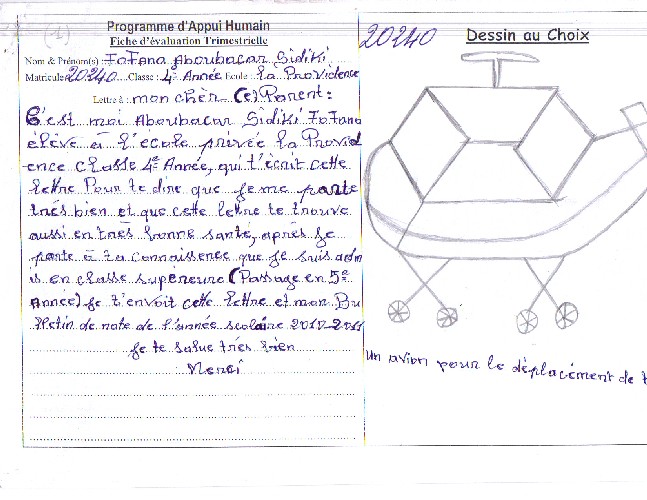 (1)
Programme d'Appui Humain
Fiche d'évaluation Trimestrielle
Nom & Prénom(s) : Fofana Aboubacar Sidiki
Matricule 20240 Classe : 4e Année Ecole : la Providence
Lettre à : mon chèr (e) Parent :
C'est moi Aboubacar Sidiki Fofana
élève à l'école privée la Provid
ence classe 4e Année, qui t'écrit cette
lettre Pour te dire que je me porte
très bien et que cette lettre te trouve
aussi en très bonne santé, après je
porte à ta connaissence que je suis adm
is en classe supérieure (Passage en 5e
Année) je t'envoit cette lettre et mon Bu
lletin de note de l'année scolaire 2010-2011
je te salue très bien
Merci
20240
Dessin au Choix
Un avion pour le déplacément de t